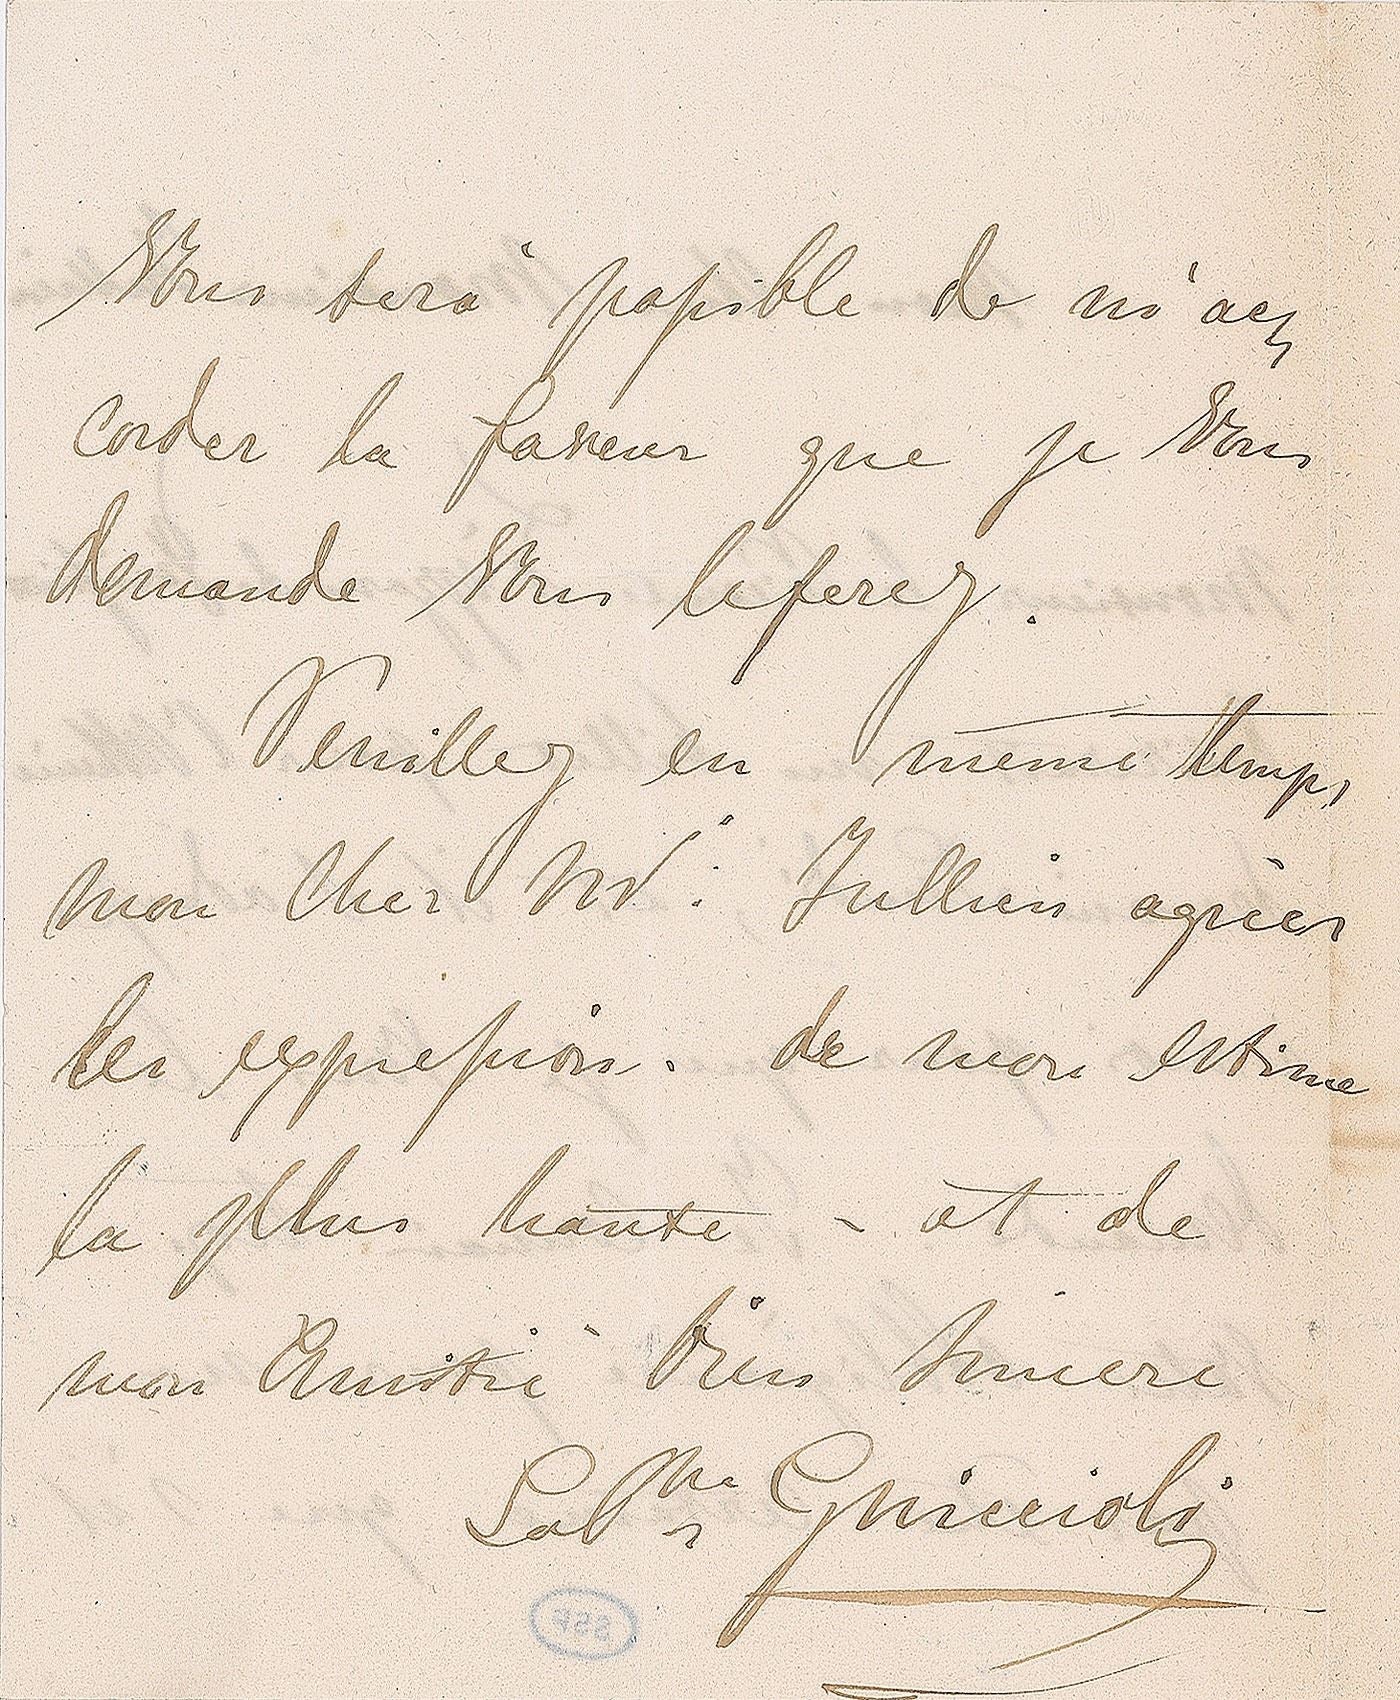 Vous sera possible de m'ac
corder la faveur que je Vous
demande Vous le ferez.
Veuillez en même temps
mon Cher Mr: Jullien agréer
les expressions. de mon estime
la plus haute - et de
mon Amitié bien sincere
Guiccioli